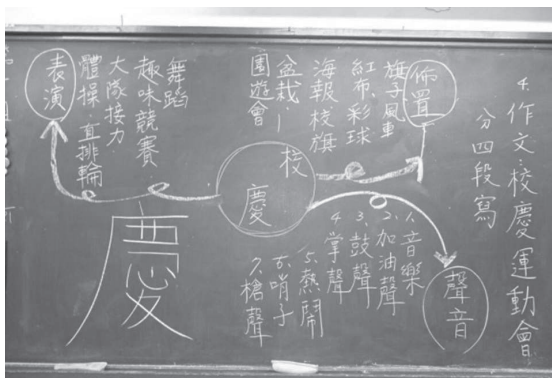 4.作文:校慶運動會
分四段寫
佈置
旗子風車
紅布、彩球
海報校旗
盆栽…
園遊會
校慶
1.音樂
2.加油聲
3.鼓聲
4.掌聲
5.熱鬧
6.哨子
7.槍聲
聲音
舞蹈
趣味競賽
大隊接力
體操、直排輪
表演
慶